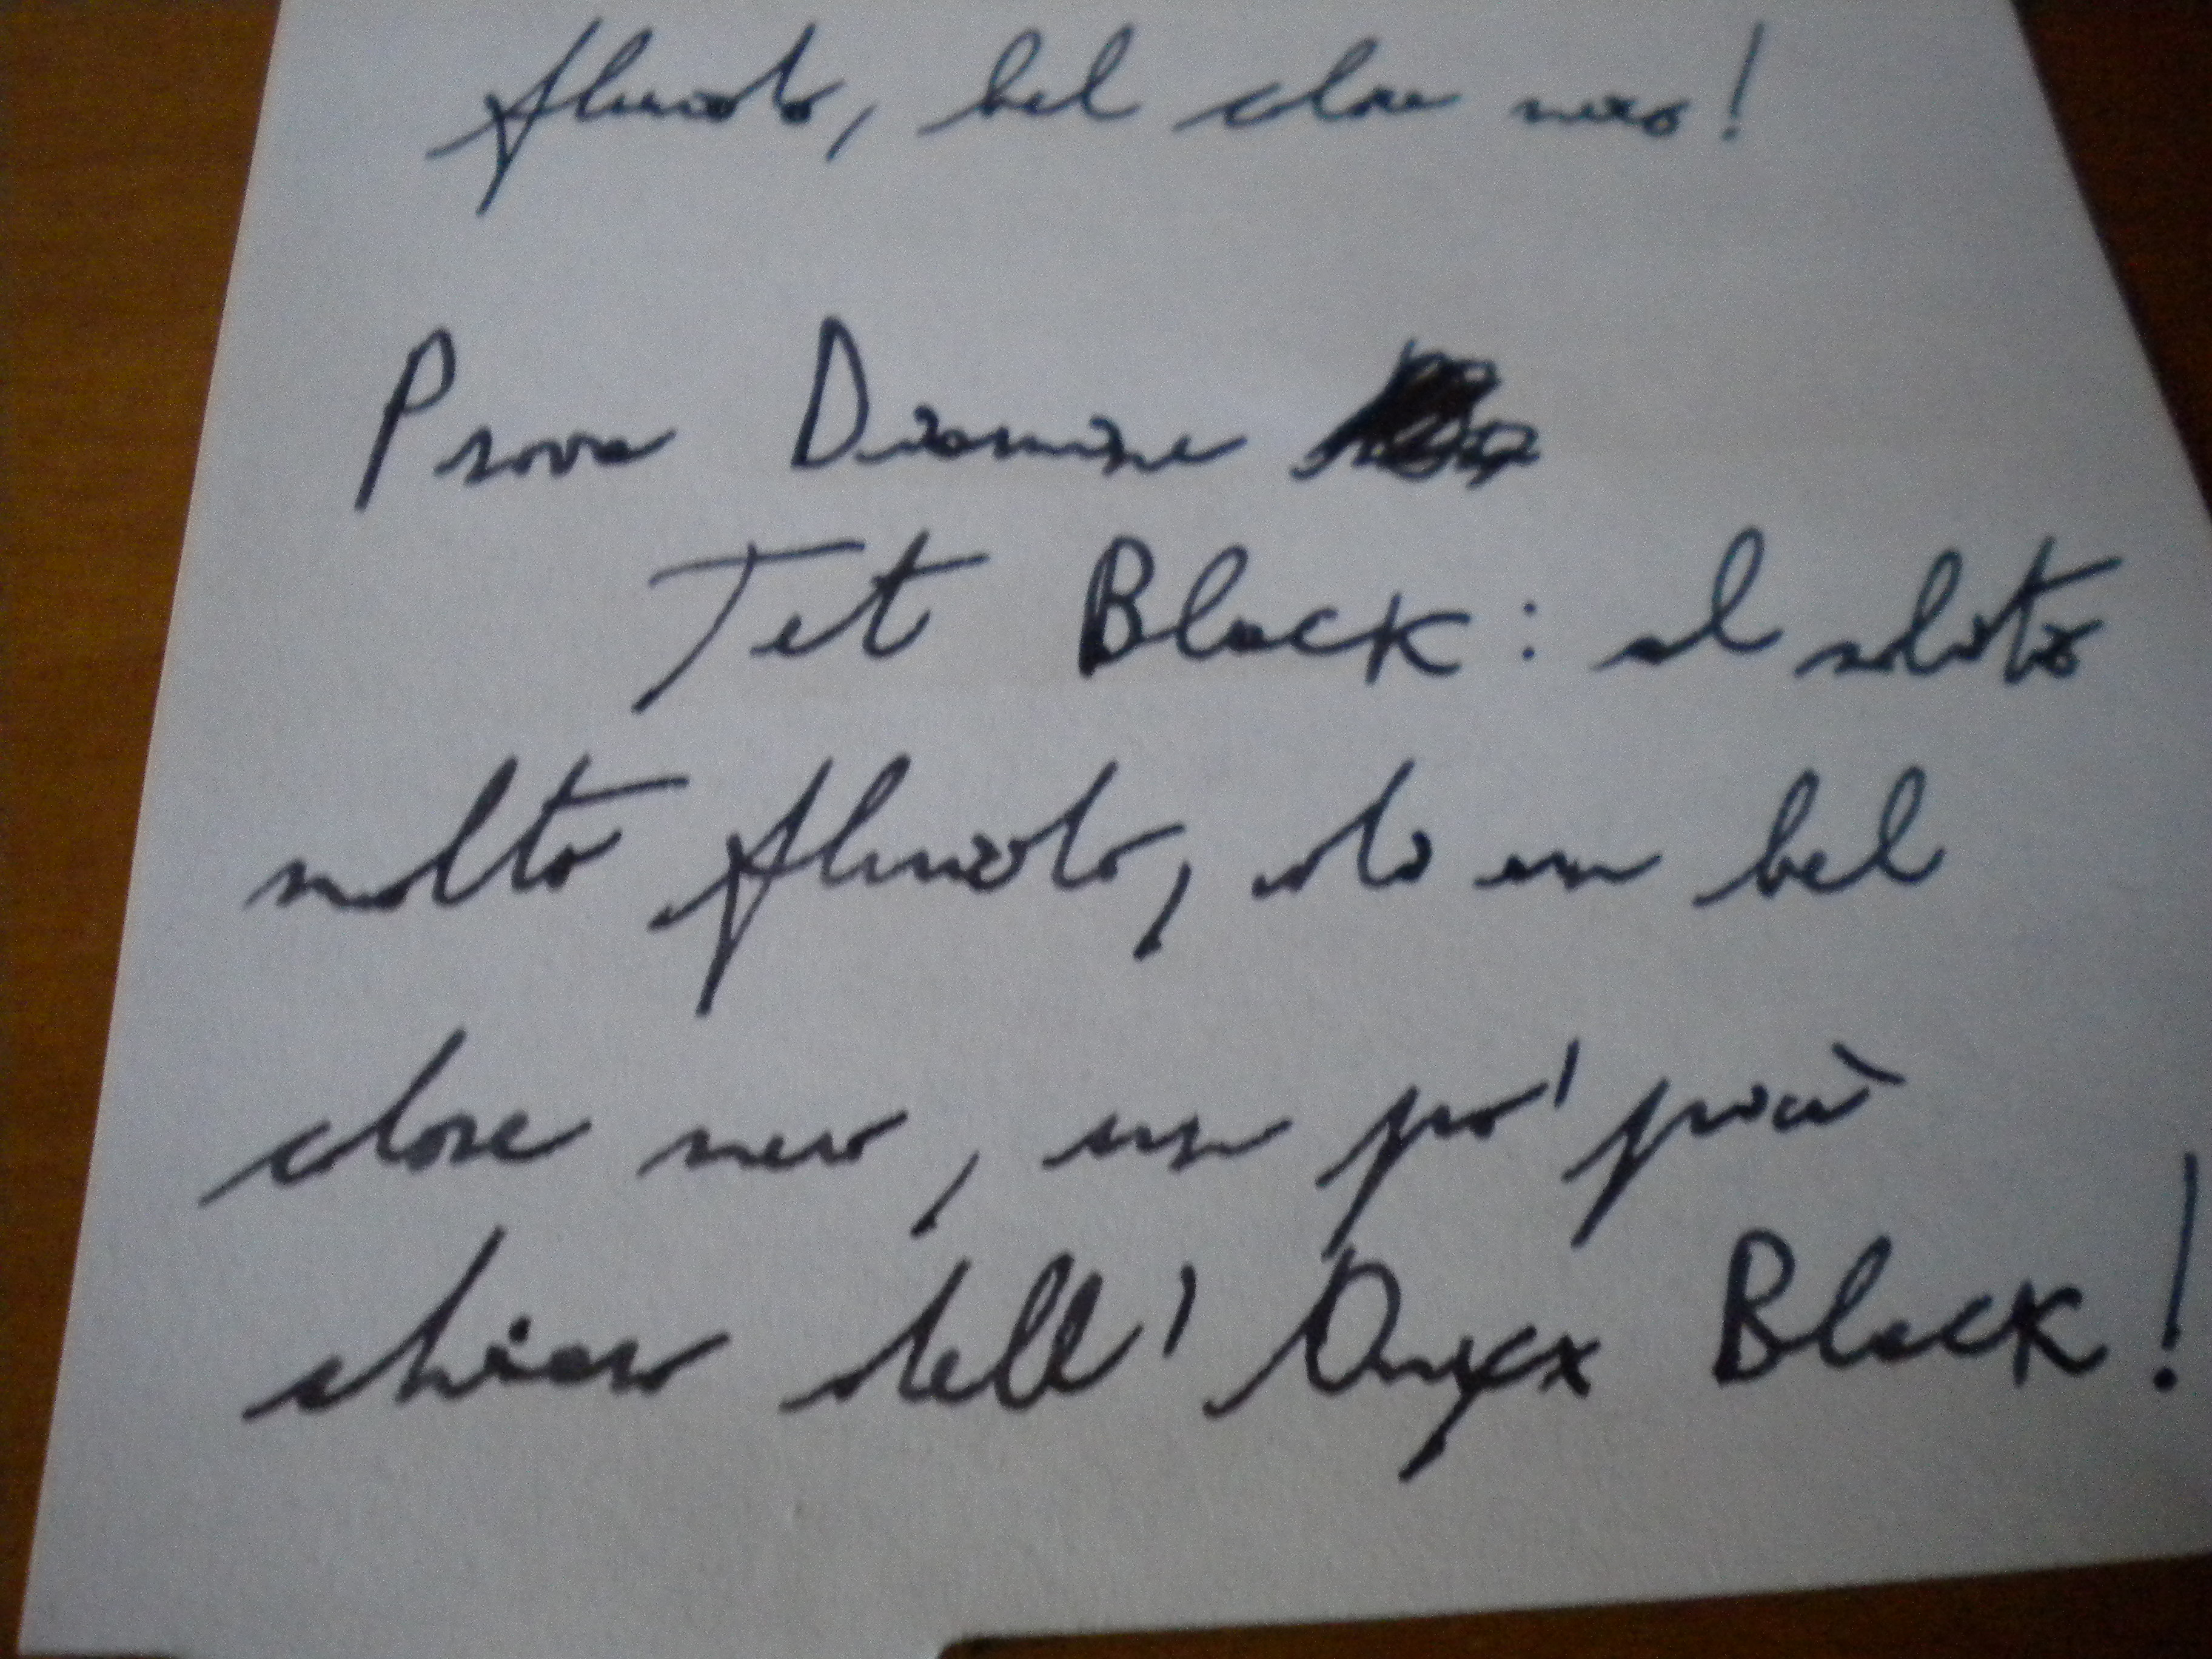 fluido, bel colore nero!
Prova Diamine
Jet Black: al solito
molto fluido, dà un bel
colore nero, un po' più
chiaro dell' Onyx Black!